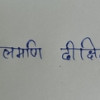 लमणि दीक्षि